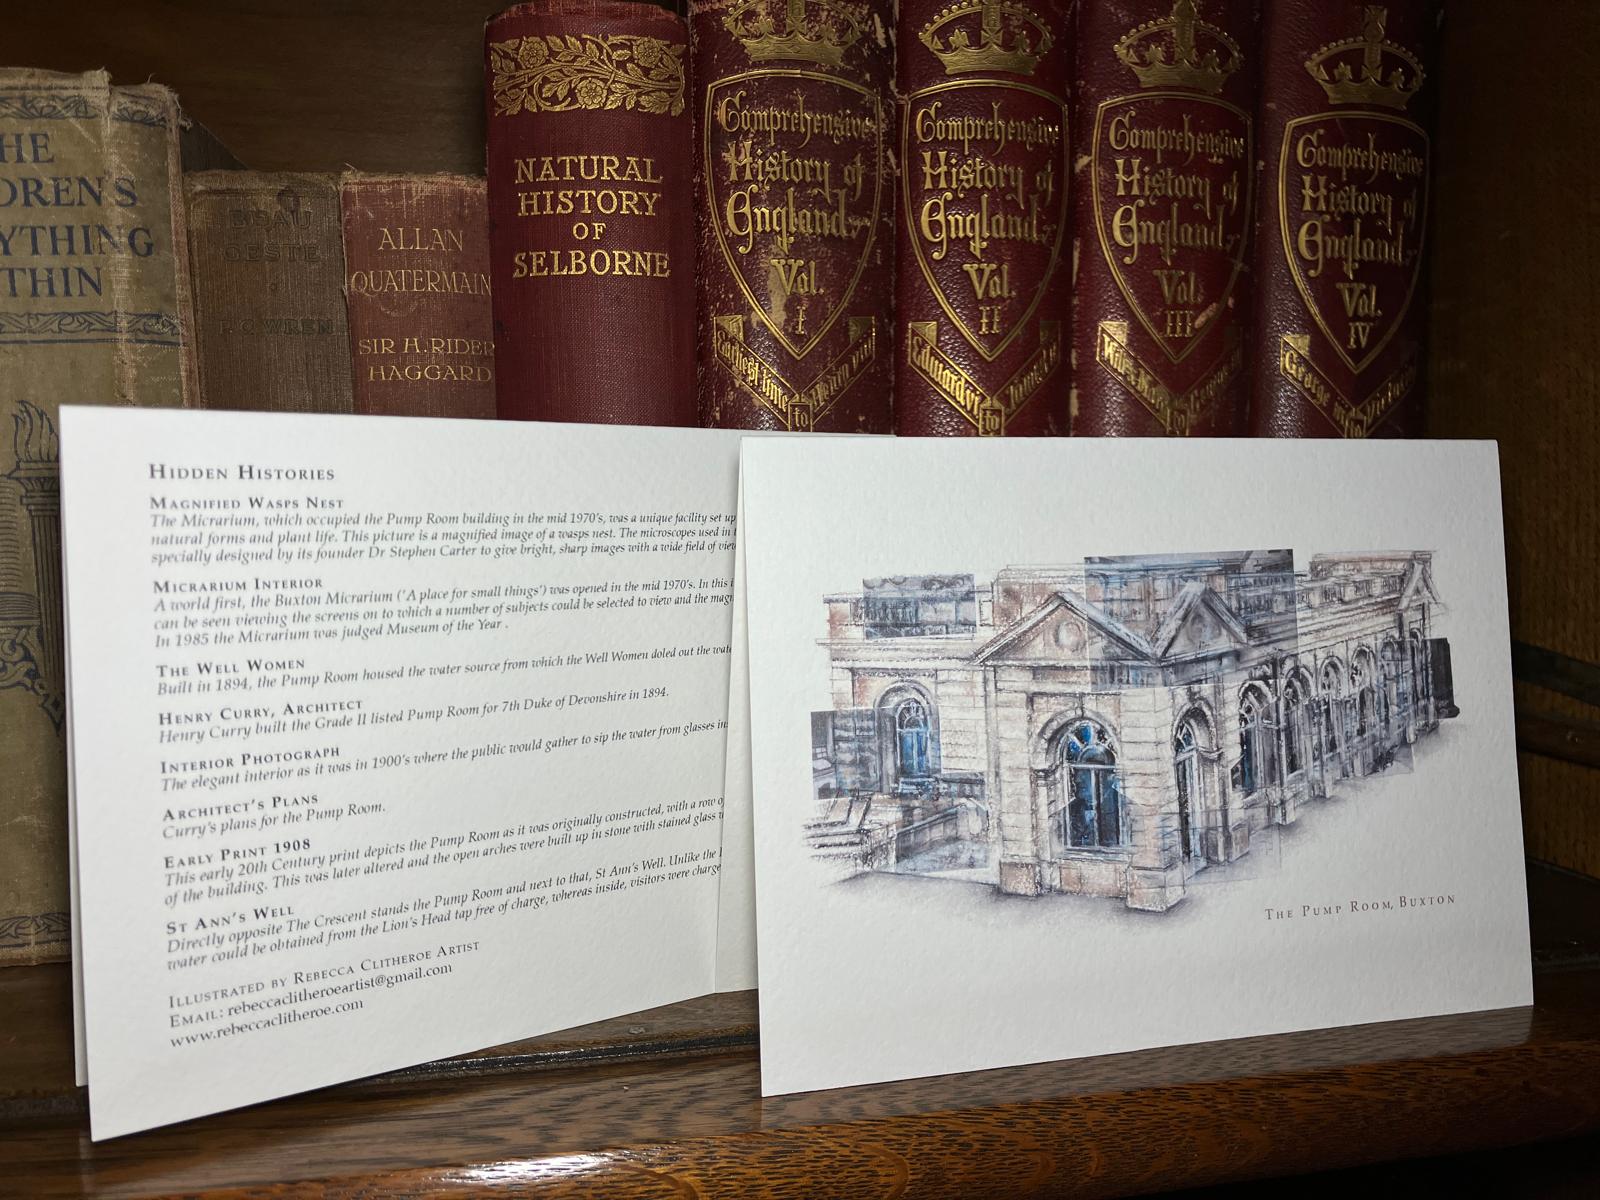 THE
DREN'S
YTHING
THIN
BEAU
GESTE
P.C. WREN
ALLAN
QUATERMAIN
SIR H. RIDER
HAGGARD
NATURAL
HISTORY
OF
SELBORNE
Comprehensive
History of
England
Vol.
I
Earliest time to Henry VII
Comprehensive
History of
England
Vol.
II
Edward VI to
Comprehensive
History of
England
Vol.
III
to
Comprehensive
History of
England
Vol.
IV
George to Victoria
HIDDEN HISTORIES
MAGNIFIED WASPS NEST
The Micrarium, which occupied the Pump Room building in the mid 1970's, was a unique facility set up
natural forms and plant life. This picture is a magnified image of a wasps nest. The microscopes used in
specially designed by its founder Dr Stephen Carter to give bright, sharp images with a wide field of view
MICRARIUM INTERIOR
A world first, the Buxton Micrarium ('A place for small things') was opened in the mid 1970's. In this
can be seen viewing the screens on to which a number of subjects could be selected to view and the
In 1985 the Micrarium was judged Museum of the Year .
THE WELL WOMEN
Built in 1894, the Pump Room housed the water source from which the Well Women doled out the
HENRY CURRY, ARCHITECT
Henry Curry built the Grade II listed Pump Room for 7th Duke of Devonshire in 1894.
INTERIOR PHOTOGRAPH
The elegant interior as it was in 1900's where the public would gather to sip the water from glasses
ARCHITECT'S PLANS
Curry's plans for the Pump Room.
EARLY PRINT 1908
This early 20th Century print depicts the Pump Room as it was originally constructed, with a row
of the building. This was later altered and the open arches were built up in stone with stained glass
ST ANN'S WELL
Directly opposite The Crescent stands the Pump Room and next to that, St Ann's Well. Unlike the
water could be obtained from the Lion's Head tap free of charge, whereas inside, visitors were charge
ILLUSTRATED BY REBECCA CLITHEROE ARTIST
EMAIL: rebeccaclitheroeartist@gmail.com
www.rebeccaclitheroe.com
THE PUMP ROOM, BUXTON